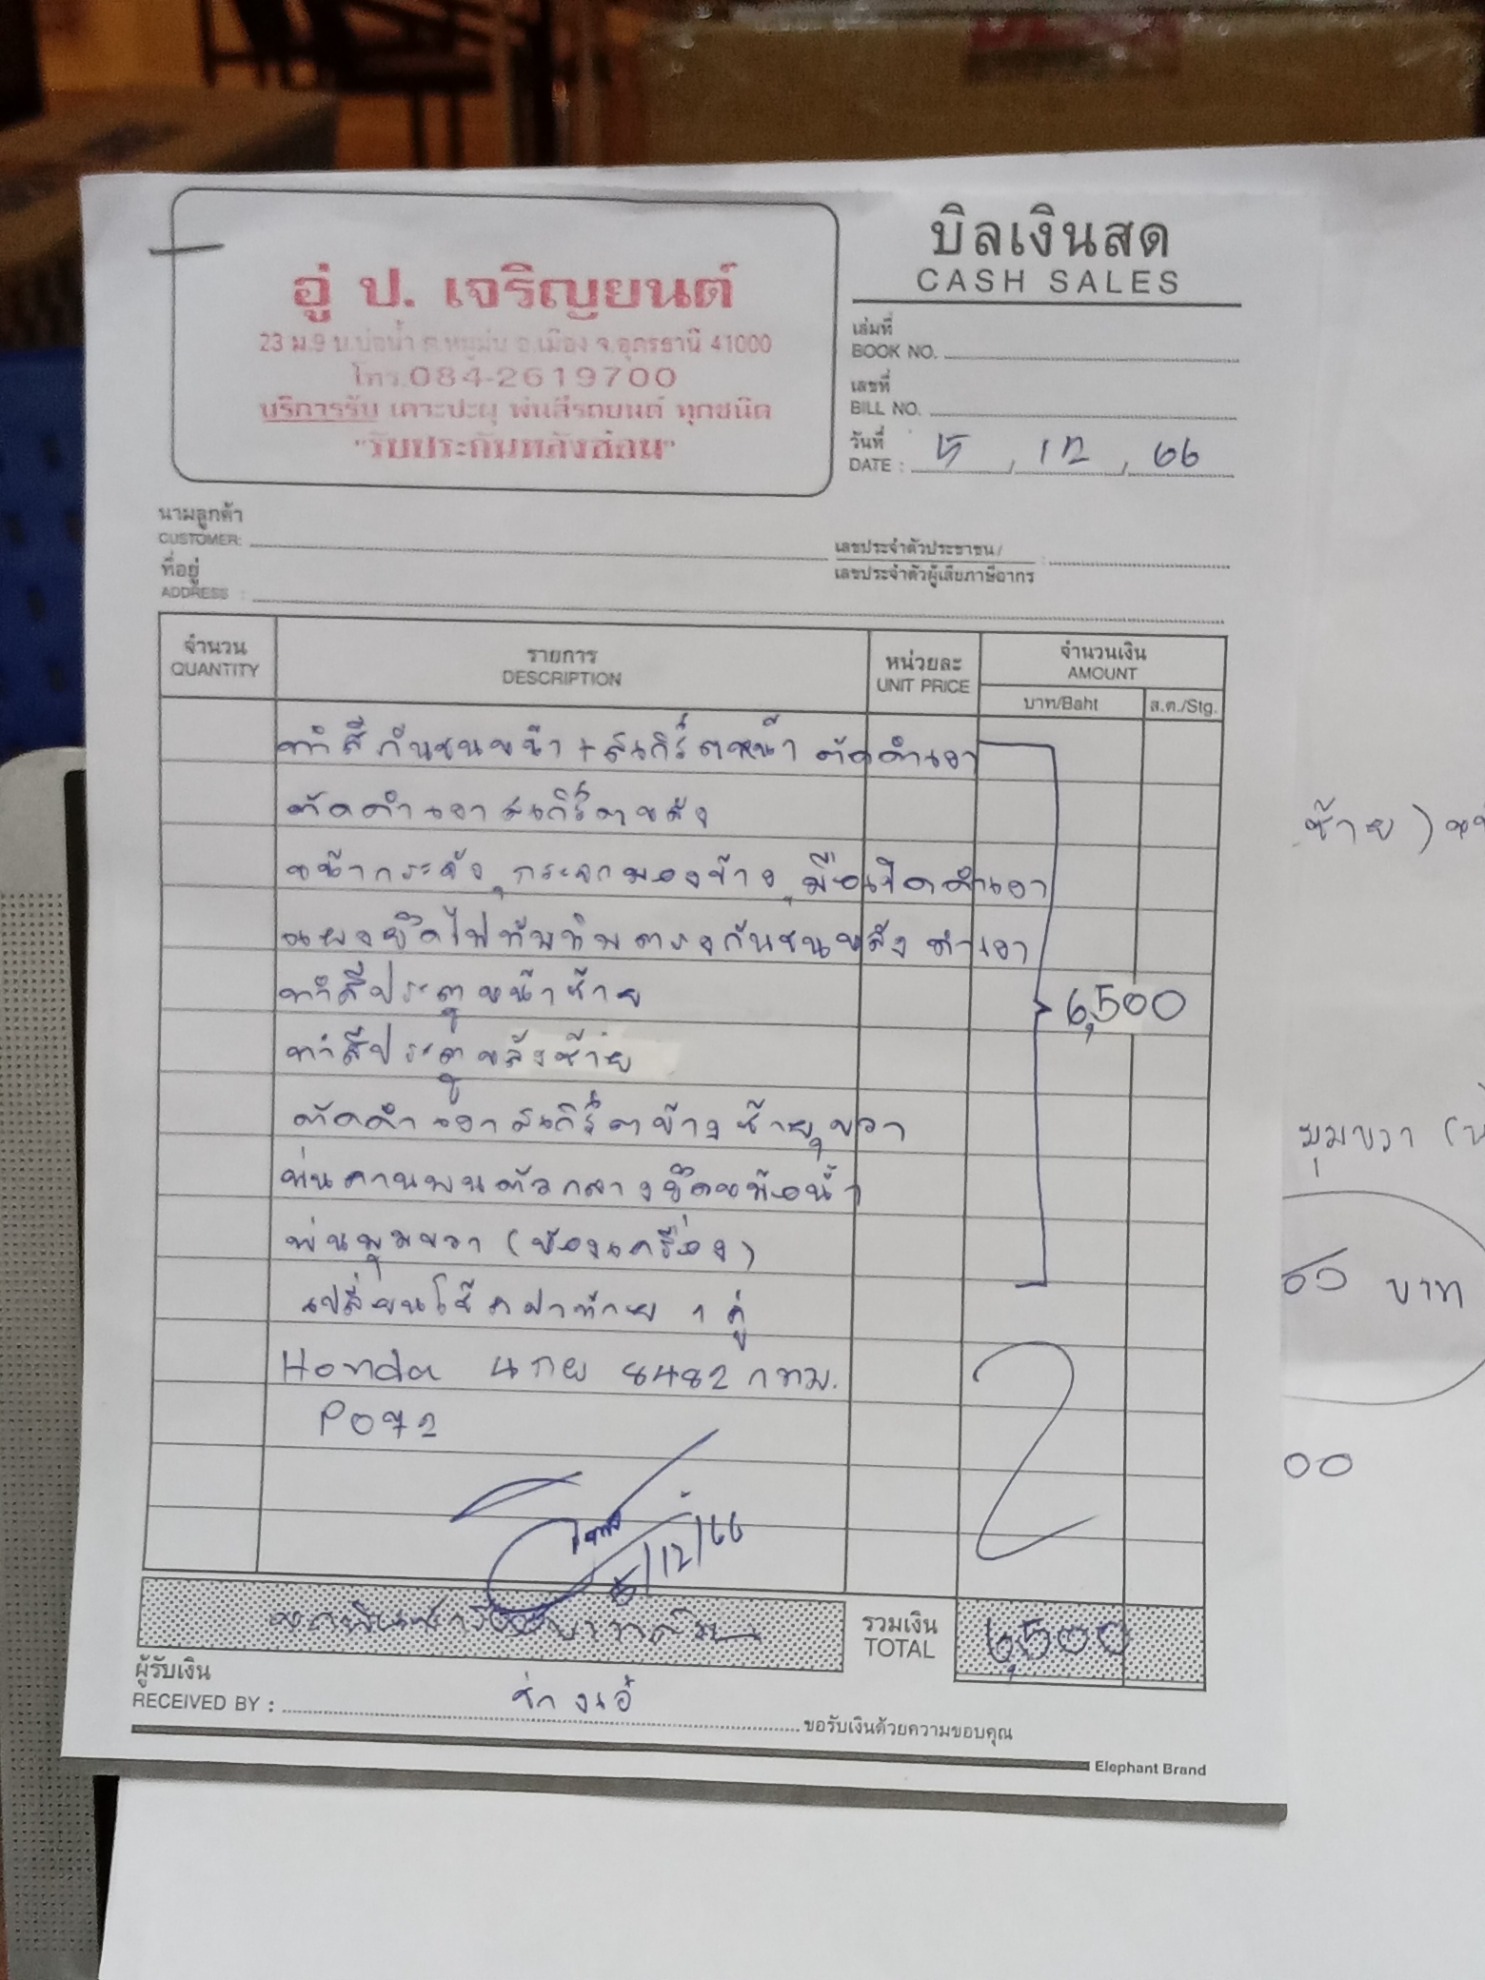 บิลเงินสด
CASH SALES
อู่ ป. เจริญยนต์
23 ม.9 บ.บ่อน้ำ ต.หมูม่น อ.เมือง จ.อุดรธานี 41000
โทร.084-2619700
บริการรับ เคาะปะผุ พ่นสีรถยนต์ ทุกชนิด
"รับประกันหลังซ่อม"
เล่มที่
BOOK NO.
เลขที่
BILL NO.
วันที่
DATE : 5 , 12 , 66
นามลูกค้า
CUSTOMER:
เลขประจำตัวประชาชน/
เลขประจำตัวผู้เสียภาษีอากร
ที่อยู่
ADDRESS :
จำนวน รายการ หน่วยละ จำนวนเงิน
QUANTITY DESCRIPTION UNIT PRICE AMOUNT
บาท/Baht ส.ต./Stg.
ทำสีกันชนหน้า + สเกิร์ตหน้า ตัดดำเงา
ตัดดำเงาสเกิร์ตหลัง
หน้ากระจัง, กระจกมองข้าง, มือเปิดดำเงา
แผงยึดไฟทับทิมตรงกันชนหลัง ดำเงา
ทำสีประตูหน้าซ้าย 6,500
ทำสีประตูหลังซ้าย
ตัดดำเงาสเกิร์ตข้างซ้าย,ขวา
พ่นคานบนตัวกลางยึดหม้อน้ำ
พ่นมุมขวา (ห้องเครื่อง)
เปลี่ยนโช๊คฝาท้าย 1 คู่
Honda 4 กย 8482 กทม.
P072
5/12/66
หกพันห้าร้อยบาทถ้วน
รวมเงิน
TOTAL 6,500
ผู้รับเงิน
RECEIVED BY : ช่างเอ้ ขอรับเงินด้วยความขอบคุณ
Elephant Brand
ซ้าย)
มุมขวา
00 บาท
00